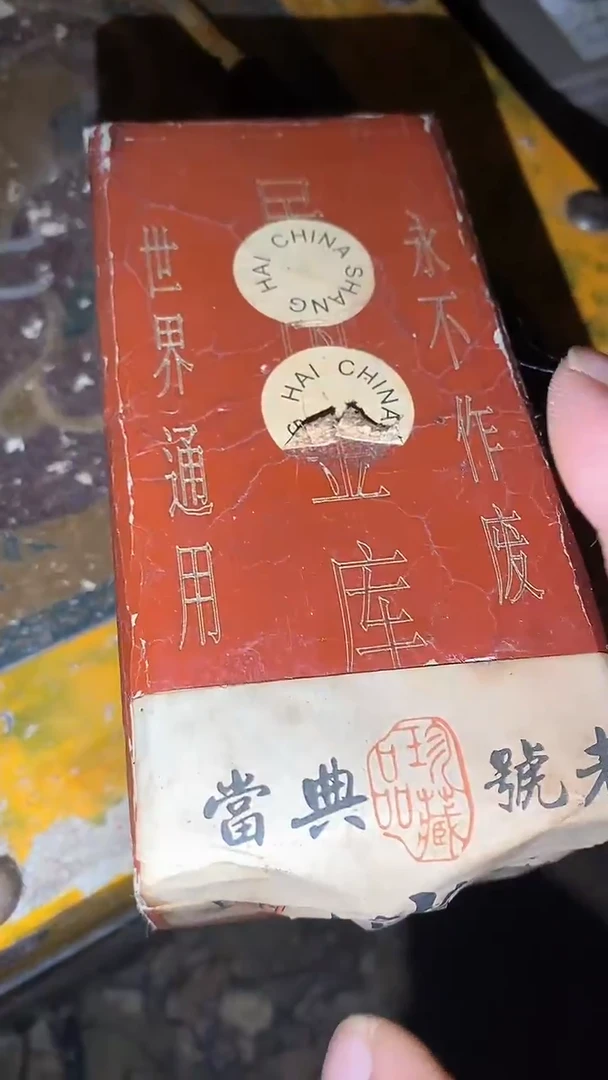 永不作废
业库
世界通用
SHANG HAI CHINA
HAI CHINA
老號
珍藏品
典當